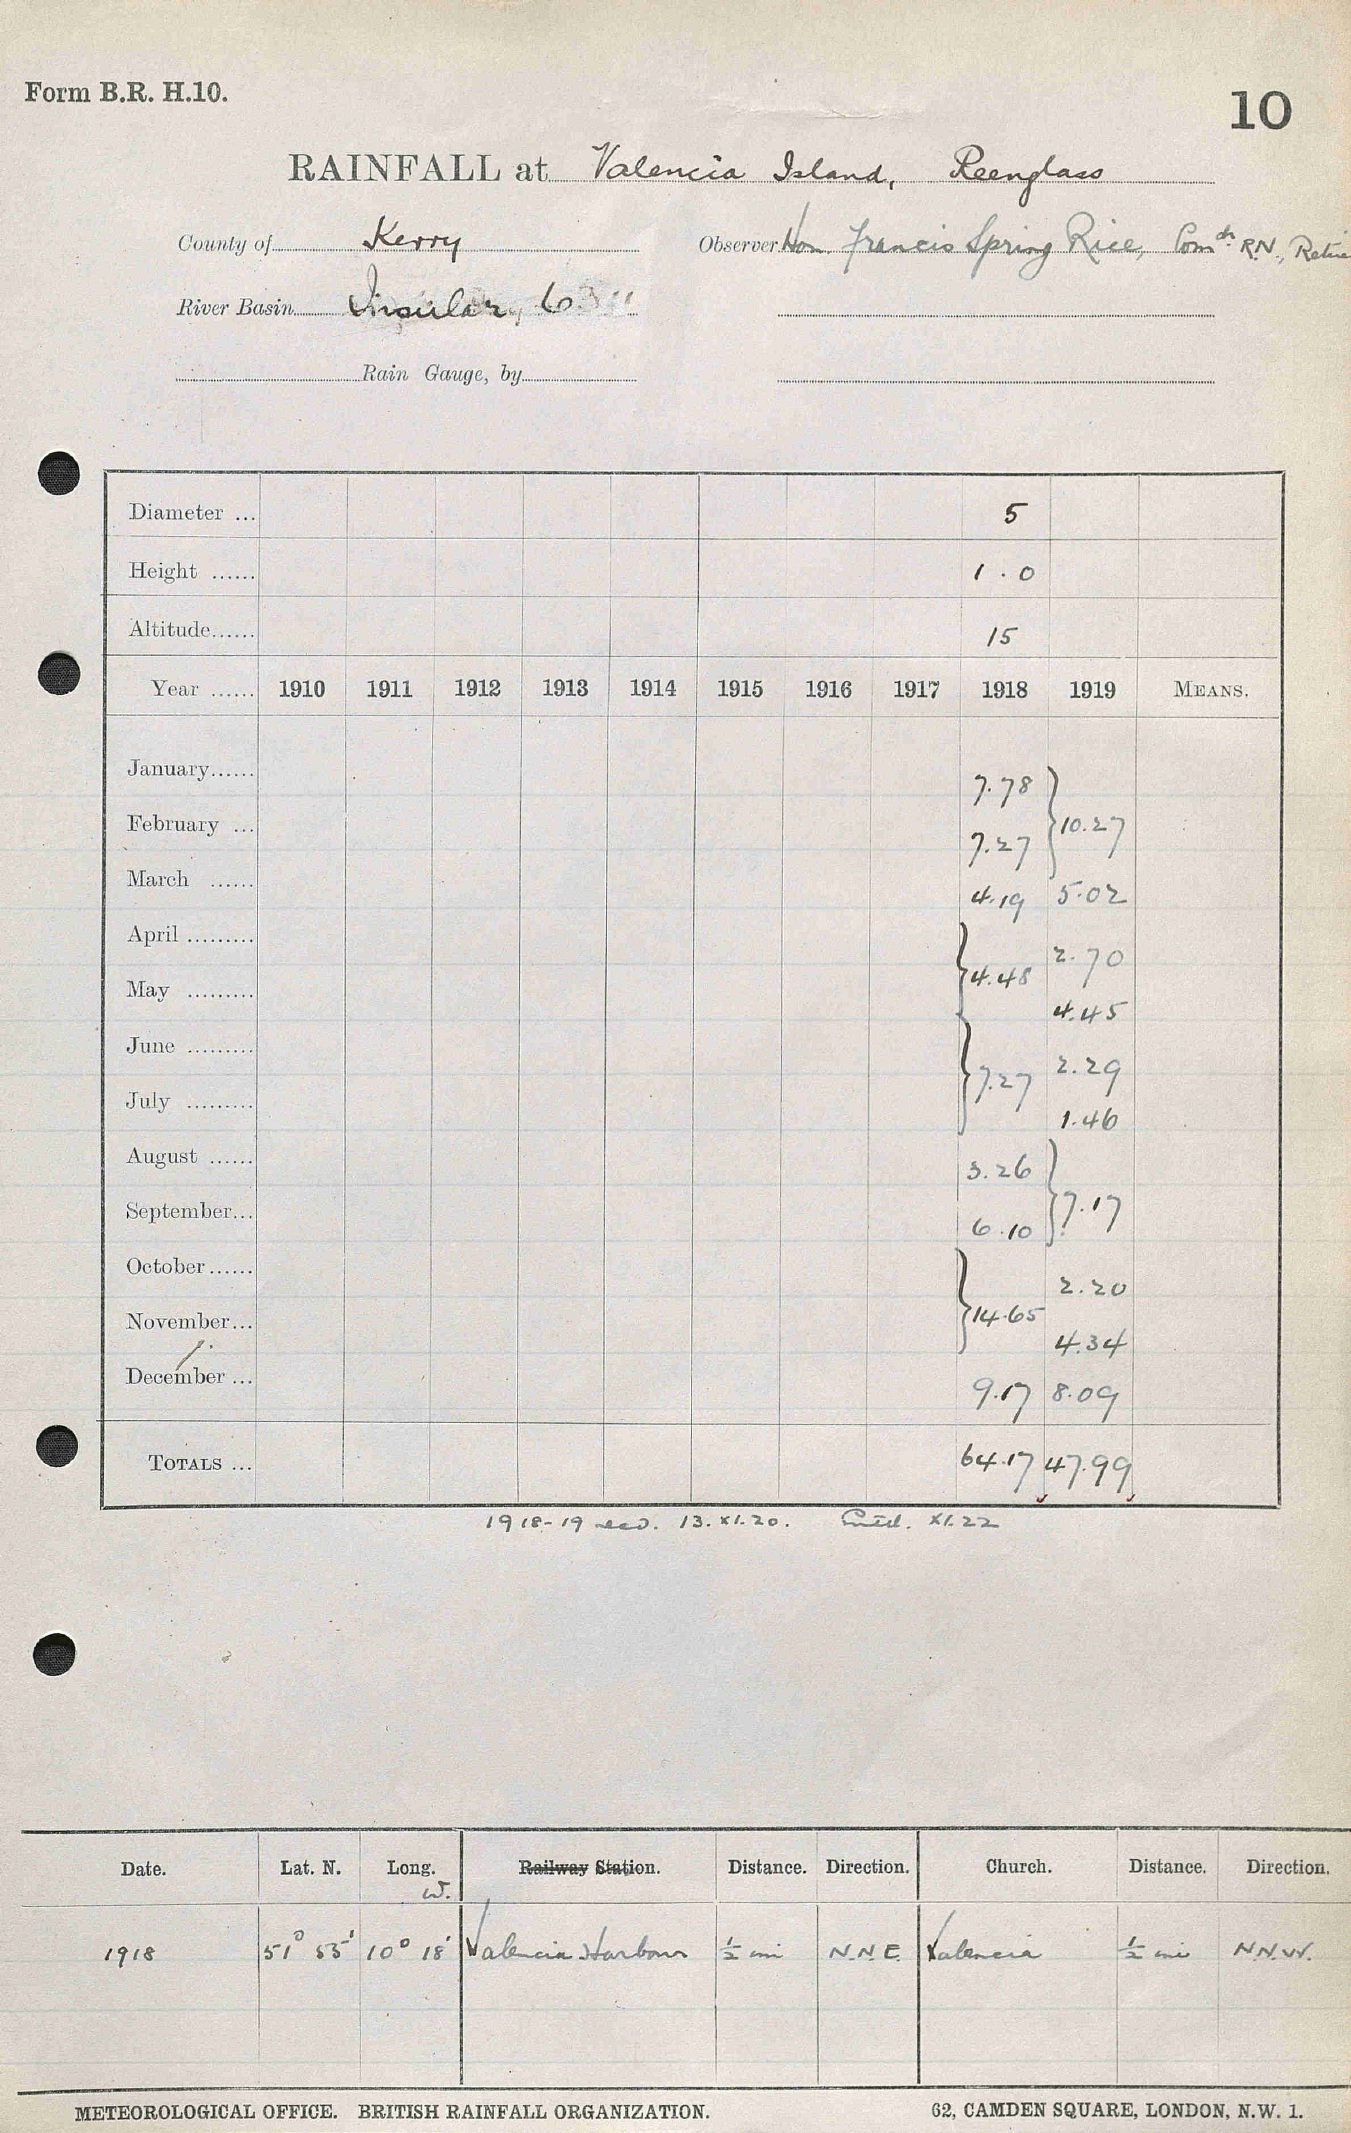 Form B.R. H.10.
10
RAINFALL at Valencia Island, Reenglass
County of Kerry Observer Hon. Francis Spring Rice, Comdr. R.N., Retire
River Basin Insular, 6
Rain Gauge, by
Diameter ... 5
Height ...... 1.0
Altitude...... 15
Year ...... 1910 1911 1912 1913 1914 1915 1916 1917 1918 1919 MEANS.
January...... 7.78
February ... 7.27 } 10.27
March ...... 4.19 5.02
April ......... } 4.48 2.70
May ......... 4.45
June ......... } 7.27 2.29
July ......... 1.46
August ...... 3.26
September... 6.10 } 7.17
October...... } 14.65 2.20
November... 4.34
December ... 9.17 8.09
TOTALS ... 64.17 47.99
1918-19 recd. 13.XI.20. Entd. XI.22
Date. Lat. N. Long. W. Railway Station. Distance. Direction. Church. Distance. Direction.
1918 51° 55' 10° 18' Valencia Harbour ½ mi N.N.E. Valencia ½ mi N.N.W.
METEOROLOGICAL OFFICE. BRITISH RAINFALL ORGANIZATION. 62, CAMDEN SQUARE, LONDON, N.W. 1.